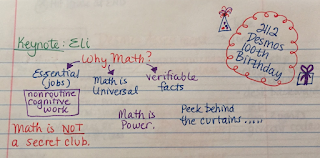 Keynote: Eli
Why Math?
Essential
(jobs)
nonroutine
cognitive
work
Math is
Universal
verifiable
facts
Math is
Power.
Peek behind
the curtains.....
Math is NOT
a secret club.
2112
Desmos
100th
Birthday